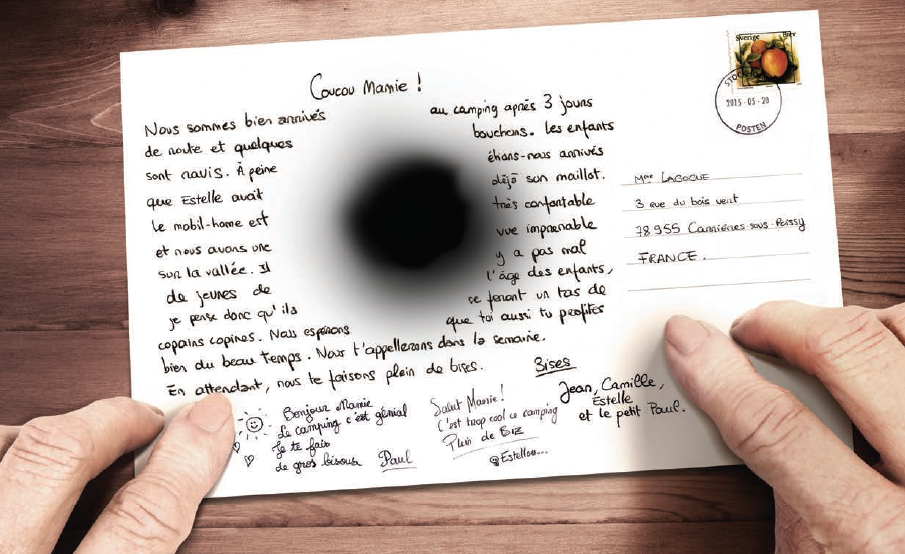 Coucou Mamie !
Nous sommes bien arrivés au camping après 3 jours
de route et quelques bouchons. Les enfants
sont ravis. À peine étions-nous arrivés
que Estelle avait déjà son maillot.
Le mobil-home est très confortable
et nous avons une vue imprenable
sur la vallée. Il y a pas mal
de jeunes de l'âge des enfants,
je pense donc qu'ils se feront un tas de
copains copines. Nous espérons que toi aussi tu profites
bien du beau temps. Nous t'appellerons dans la semaine.
En attendant, nous te faisons plein de bises.
Bises
Jean, Camille,
Estelle
et le petit Paul.
Bonjour Mamie
Le camping c'est génial
Je te fais
de gros bisous Paul
Salut Mamie !
C'est trop cool ce camping
Plein de Biz
@Estelloo...
Sverige Brev
2015-05-20
POSTEN
Mme LACOQUE
3 rue du bois vert
78955 Carrières-sous-Poissy
FRANCE.